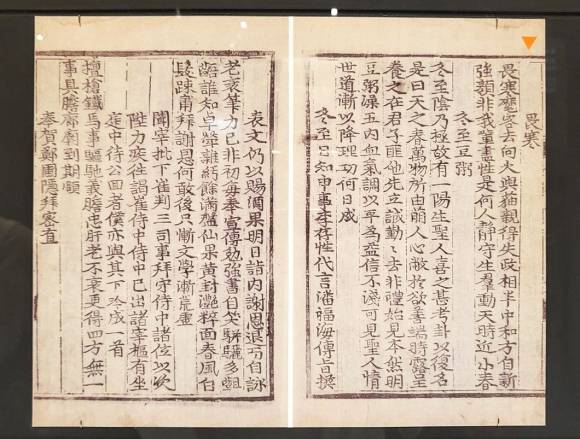 畏寒
畏寒麽客去向火與猫親得失政相半中和方自新
強顏非我輩盡性是何人靜守生羣動天時近小春
冬至豆粥
冬至陰乃極故有一陽生聖人喜之甚考卦以復名
是曰天之春萬物所由萌人心敝於欲善端時露呈
養之在君子匪他先立誠動以去非禮始見本然明
豆粥澡五內血氣調以平爲益信不淺可見聖人情
世道漸以降理功何日成
冬至日知申事李存性代言潘福海傳旨撰
表文仍以賜酒果明日詣內謝恩退而自詠
老衰筆力已非初每奉宣傳勉強書自笑駢驪多齟
齬誰知卓犖雜紆餘滿檻仙果黃封灧粹面春風白
髮踈肅拜謝恩何敢後只慚文學漸荒虛
宰批下崔判三司事拜守侍中諸位以次
陞力疾往謁崔侍中侍中已出諸宰樞有坐
中待公回者僕亦與其下吟成一首
槍鐵馬事驅馳義膽忠肝老不衰更得四方無一
事具瞻廊廟到期頤
奉賀鄭圃隱拜密直